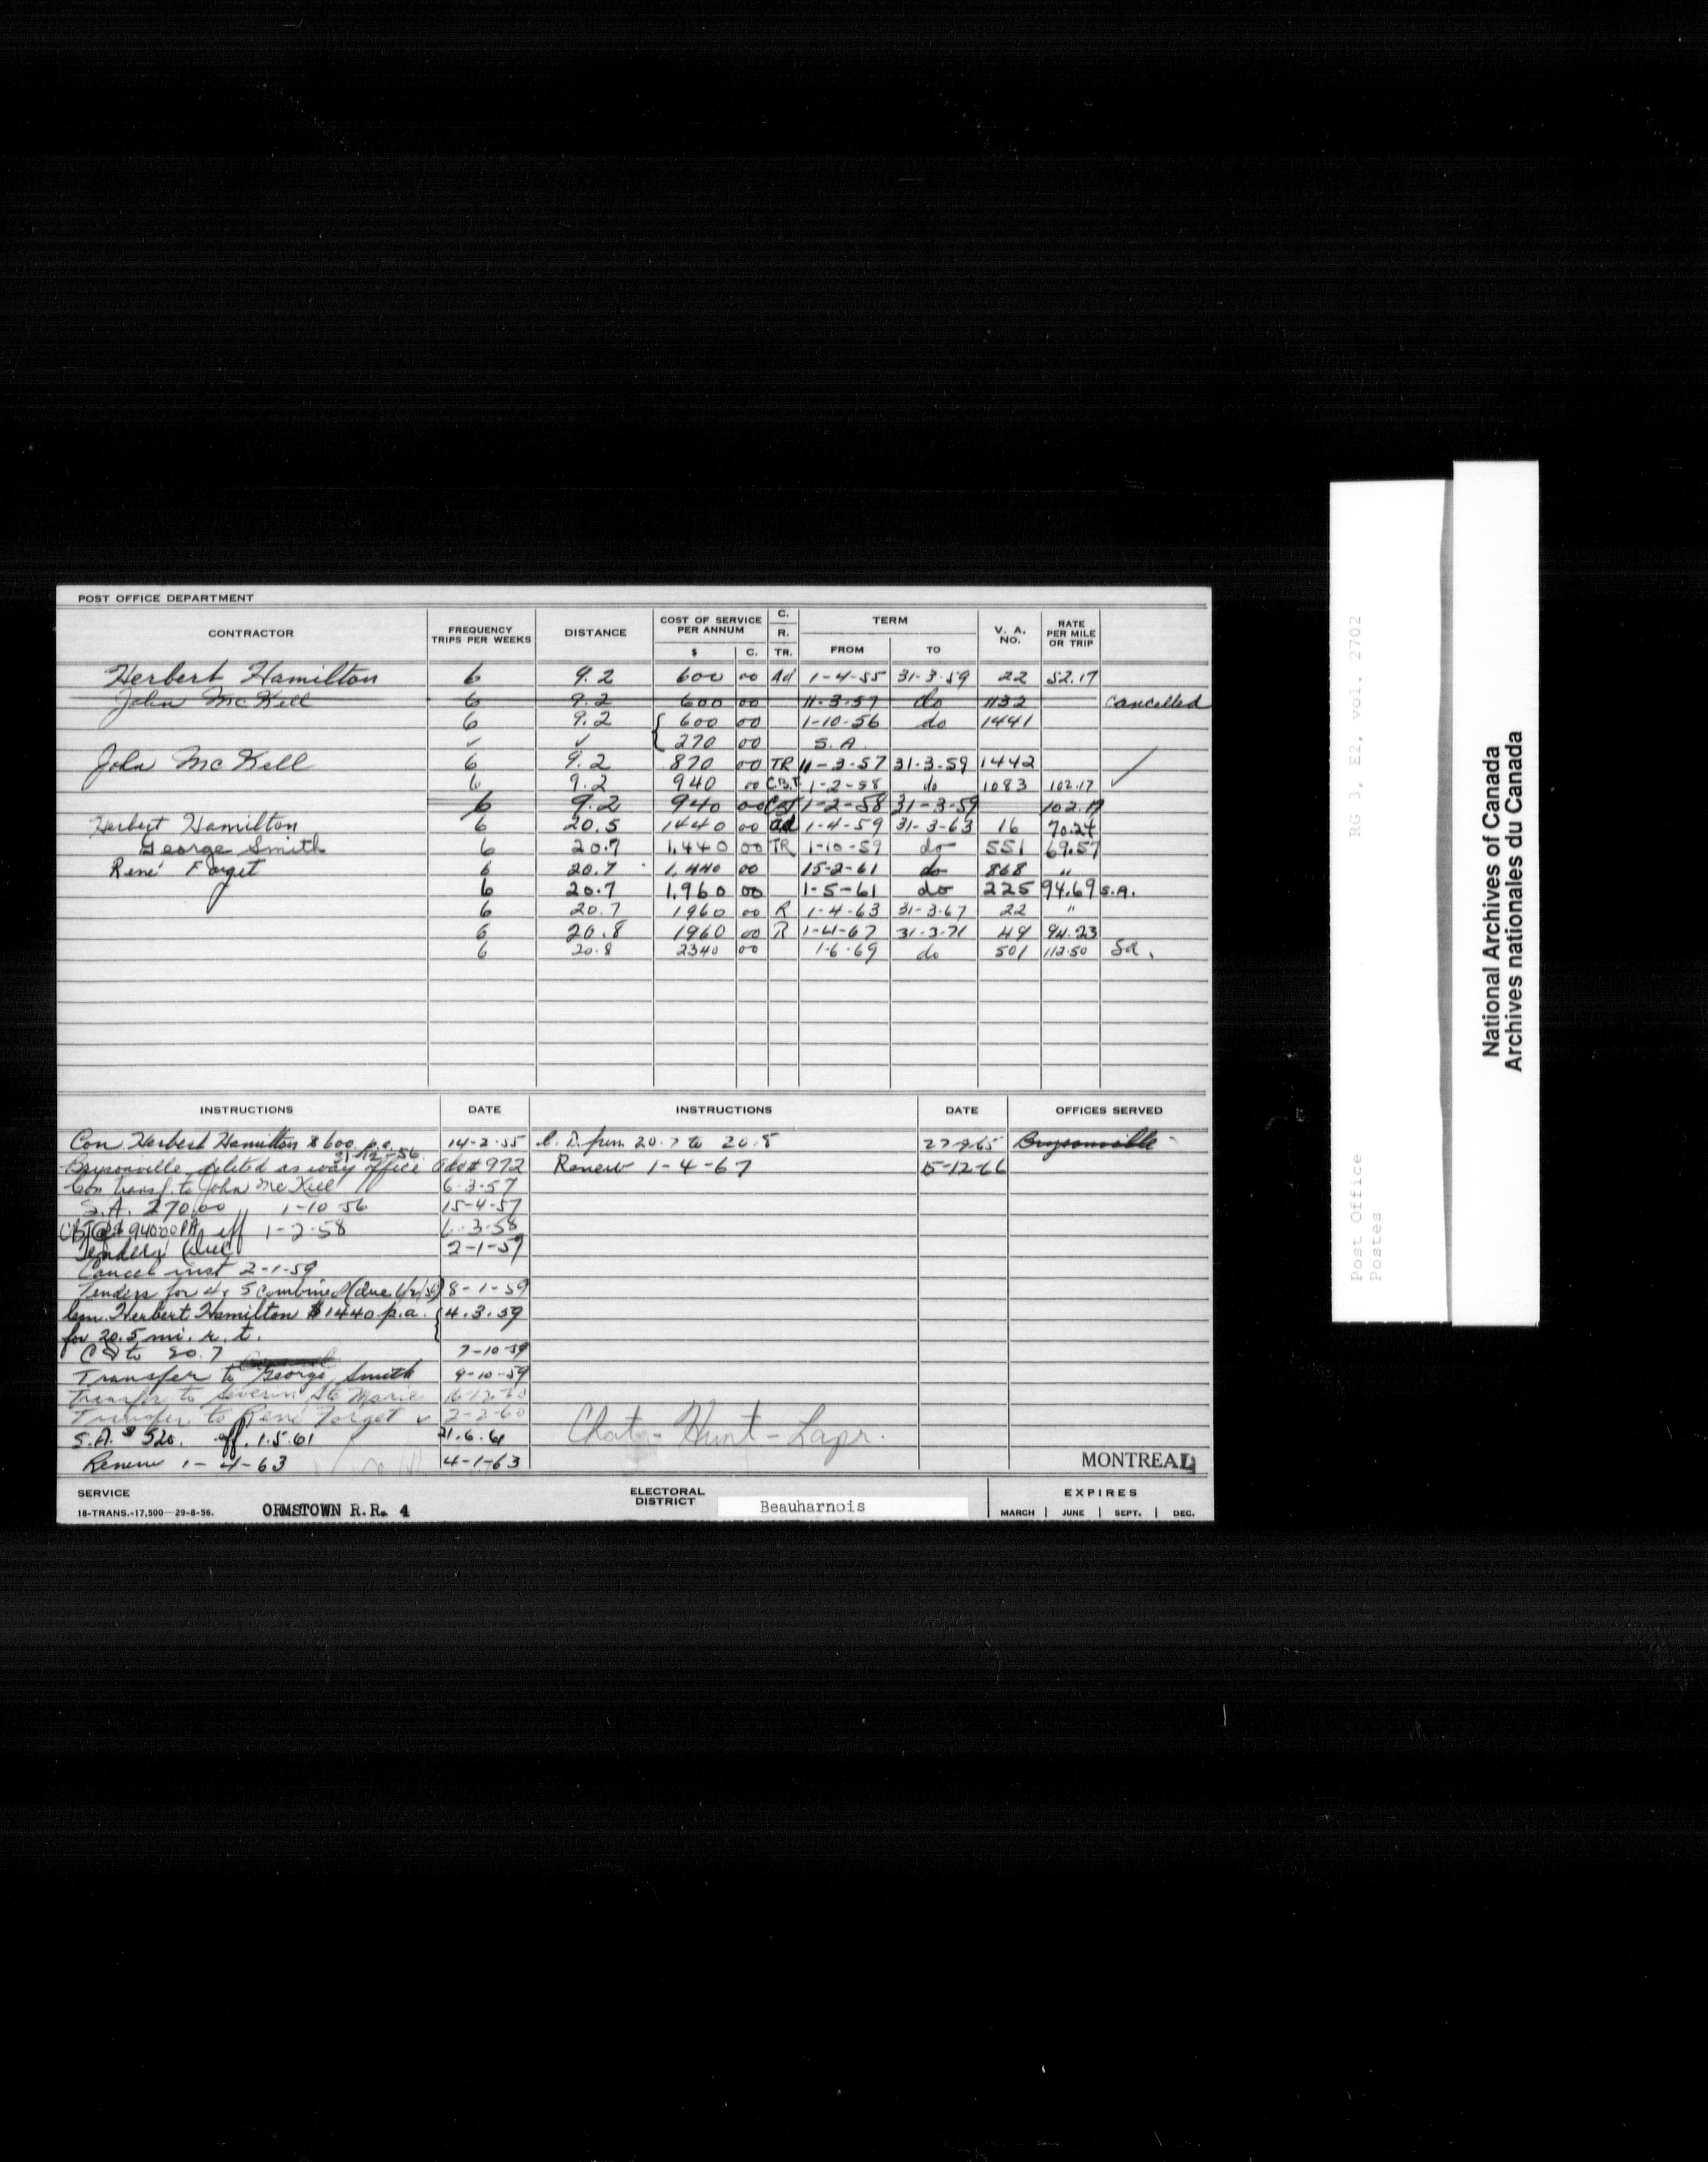 POST OFFICE DEPARTMENT
CONTRACTOR FREQUENCY TRIPS PER WEEKS DISTANCE COST OF SERVICE PER ANNUM $ C. C. R. TR. TERM FROM TO V. A. NO. RATE PER MILE OR TRIP
Herbert Hamilton 6 9.2 600 00 Ad 1-4-55 31-3-59 22 52.17
John McKell 6 9.2 600 00 11-3-57 do 1132 cancelled
6 9.2 { 600 00 1-10-56 do 1441
✓ ✓ 270 00 S.A.
John McKell 6 9.2 870 00 TR 11-3-57 31-3-59 1442
6 9.2 940 00 C.B.T 1-2-58 do 1083 102.17 ✓
6 9.2 940 00 CBT 1-2-58 31-3-59 102.17
Herbert Hamilton 6 20.5 1440 00 ad 1-4-59 31-3-63 16 70.24
George Smith 6 20.7 1,440 00 TR 1-10-59 do 551 69.57
René Forget 6 20.7 1,440 00 15-2-61 do 868 "
6 20.7 1,960 00 1-5-61 do 225 94.69 S.A.
6 20.7 1960 00 R 1-4-63 31-3-67 22 "
6 20.8 1960 00 R 1-4-67 31-3-71 49 94.23
6 20.8 2340 00 1-6-69 do 501 112.50 Sa.
INSTRUCTIONS DATE INSTRUCTIONS DATE OFFICES SERVED
Con. Herbert Hamilton $600 p.a. 14-2-55 C.D. from 20.7 to 20.8 27-9-65 Brysonville
31-12-56
Brysonville deleted as way office 972 Renew 1-4-67 15-12-66
Con transf. to John McKell 6-3-57
S.A. 270.00 1-10-56 15-4-57
CBT @ $940.00 PA eff 1-2-58 6-3-58
Tenders 2-1-59
Cancel inst 2-1-59
Tenders for 4 & 5 combined 8-1-59
Herbert Hamilton $1440 p.a. { 4.3.59
for 20.5 mi. r. t.
CD to 20.7 7-10-59
Transfer to George Smith 9-10-59
Transfer to Severin Ste Marie 16-12-60
Transfer to René Forget ✓ 2-2-60
S.A. $520. eff. 1.5.61 21.6.61 Chat-Hunt-Lapr.
Renew 1-4-63 4-1-63 MONTREAL
SERVICE ORMSTOWN R.R. 4 ELECTORAL DISTRICT Beauharnois EXPIRES
18-TRANS.-17,500—29-8-56. MARCH | JUNE | SEPT. | DEC.
RG 3, E2, vol. 2702
Post Office
Postes
National Archives of Canada
Archives nationales du Canada